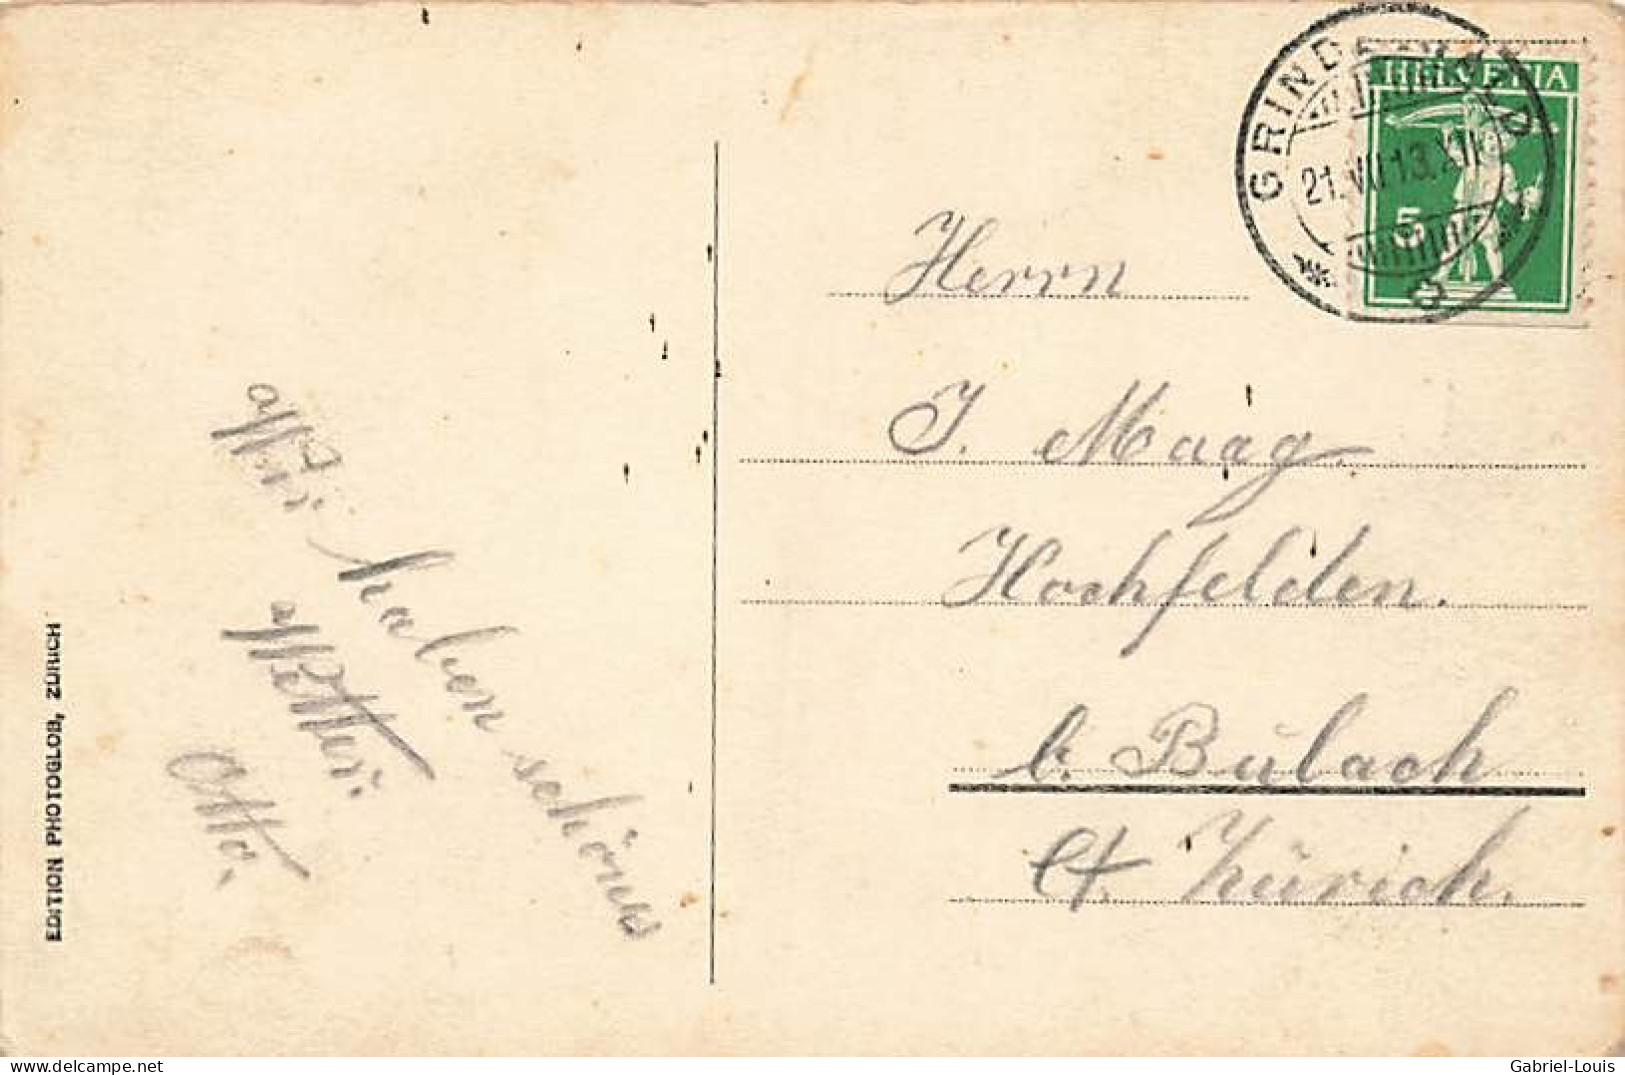 Wir haben schönes
Wetter.
Otto.
EDITION PHOTOGLOB, ZÜRICH
GRINDELWALD
21.VII.13.XII
HELVETIA
5
Herrn
J. Maag.
Hochfelden.
b. Bülach
Ct. Zürich.
www.delcampe.net
Gabriel-Louis